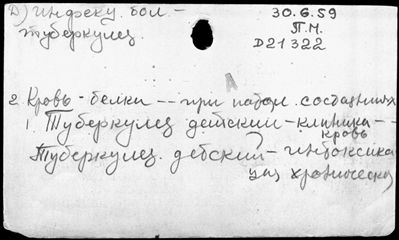 Д) инфекц. бол. -
туберкулез.
30.6.59
П.М.
D21322
2. Кровь - белки -- при патол. состояниях
1. Туберкулез детский - клиника --
кровь
Туберкулез. детский -
хроническая